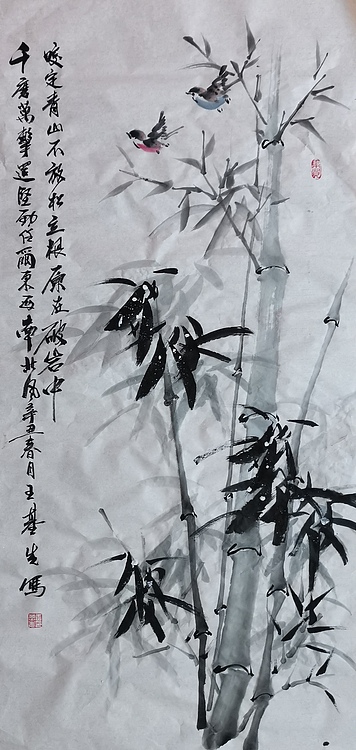 咬定青山不放松立根原在破岩中
千磨萬擊還堅劲任爾東西南北风辛丑春月王基生寫